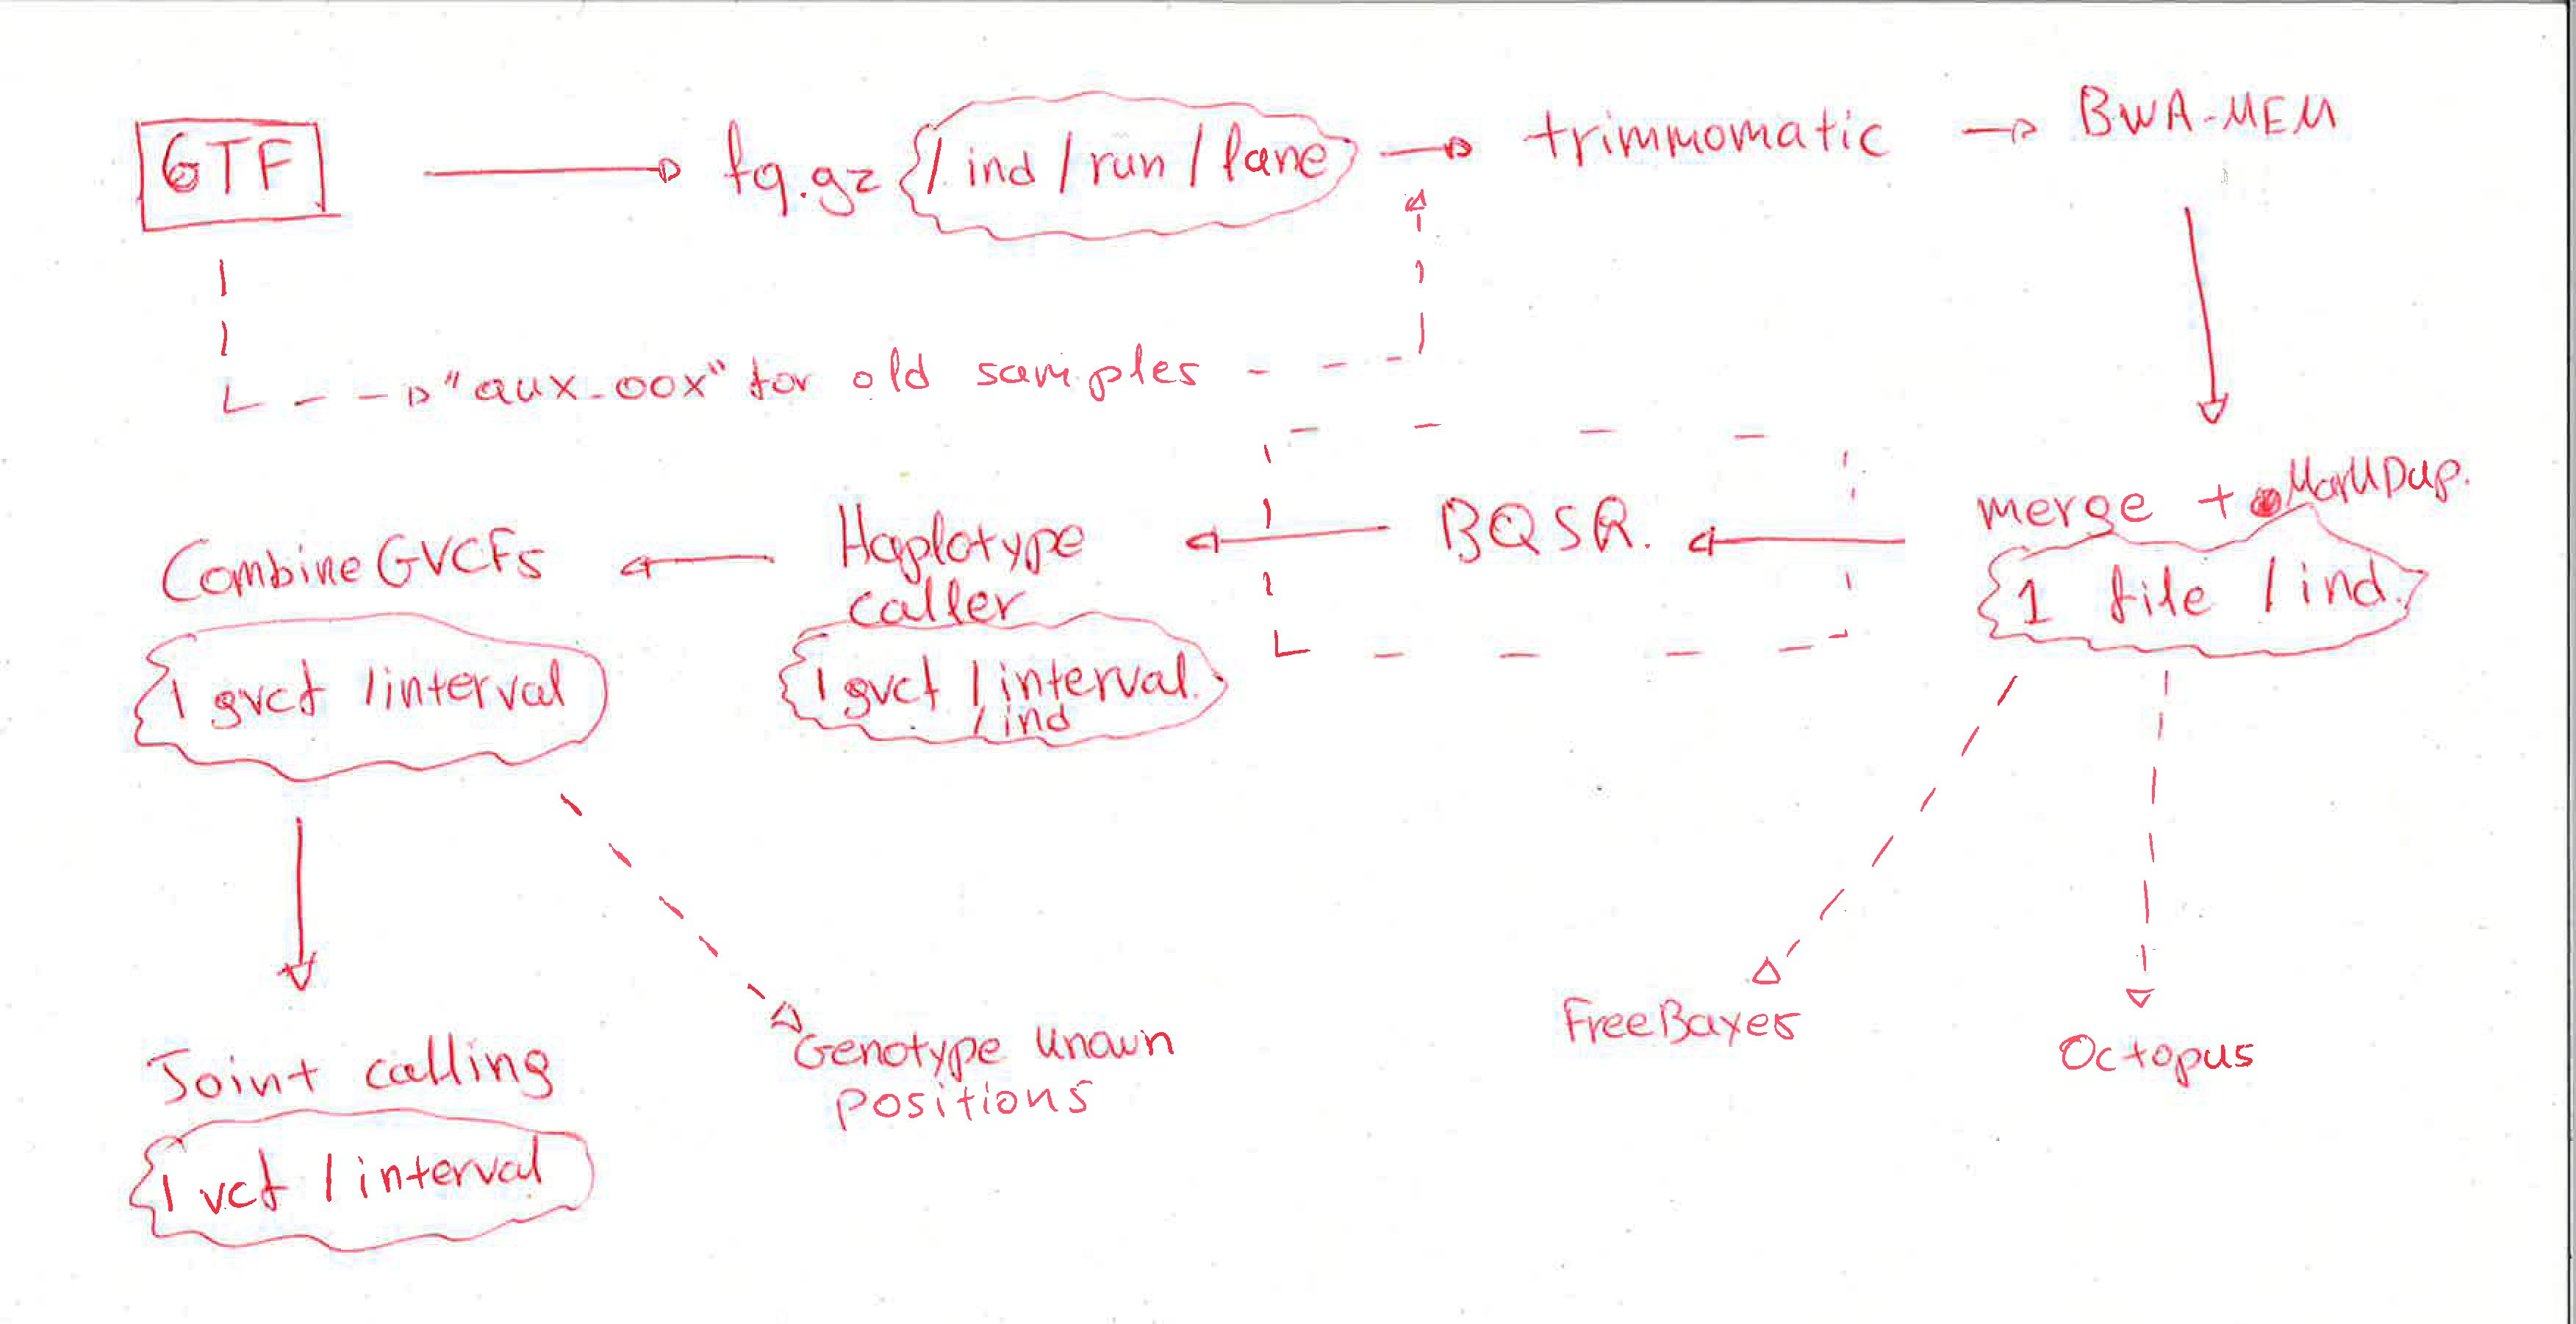 GTF
fq.gz / ind / run / lane
trimmomatic
BWA-MEM
"aux_oox" for old samples
merge + MarkDup.
1 file / ind.
BQSR.
Haplotype
caller
1 gvcf / interval
/ ind
Combine GVCFs
1 gvcf / interval
Joint calling
1 vcf / interval
Genotype known
positions
FreeBayes
Octopus